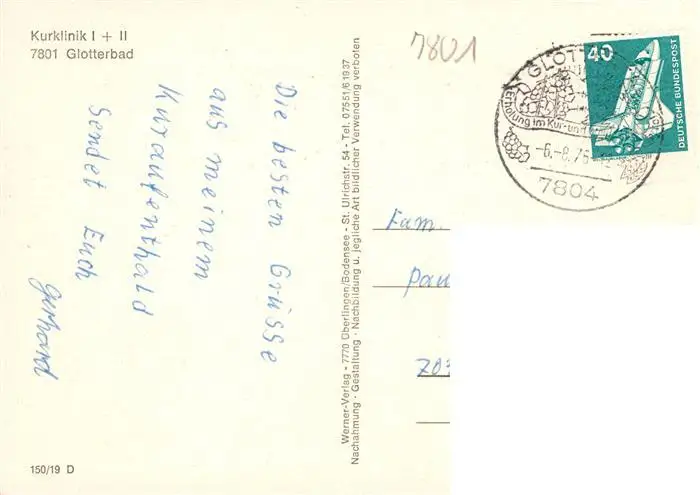 Kurklinik I + II
7801 Glotterbad
7801
GLOTT
Erholung im Kur-und
-6.-8.76-12
7804
40
DEUTSCHE BUNDESPOST
Die besten Grüsse
aus meinem
Kuraufenthald
Sendet Euch
Gerhard
Werner-Verlag - 7770 Überlingen/Bodensee - St. Ulrichstr. 54 - Tel. 07551/61937
Nachahmung · Gestaltung · Nachbildung u. jegliche Art bildlicher Verwendung verboten
Fam.
Pau
703
150/19 D